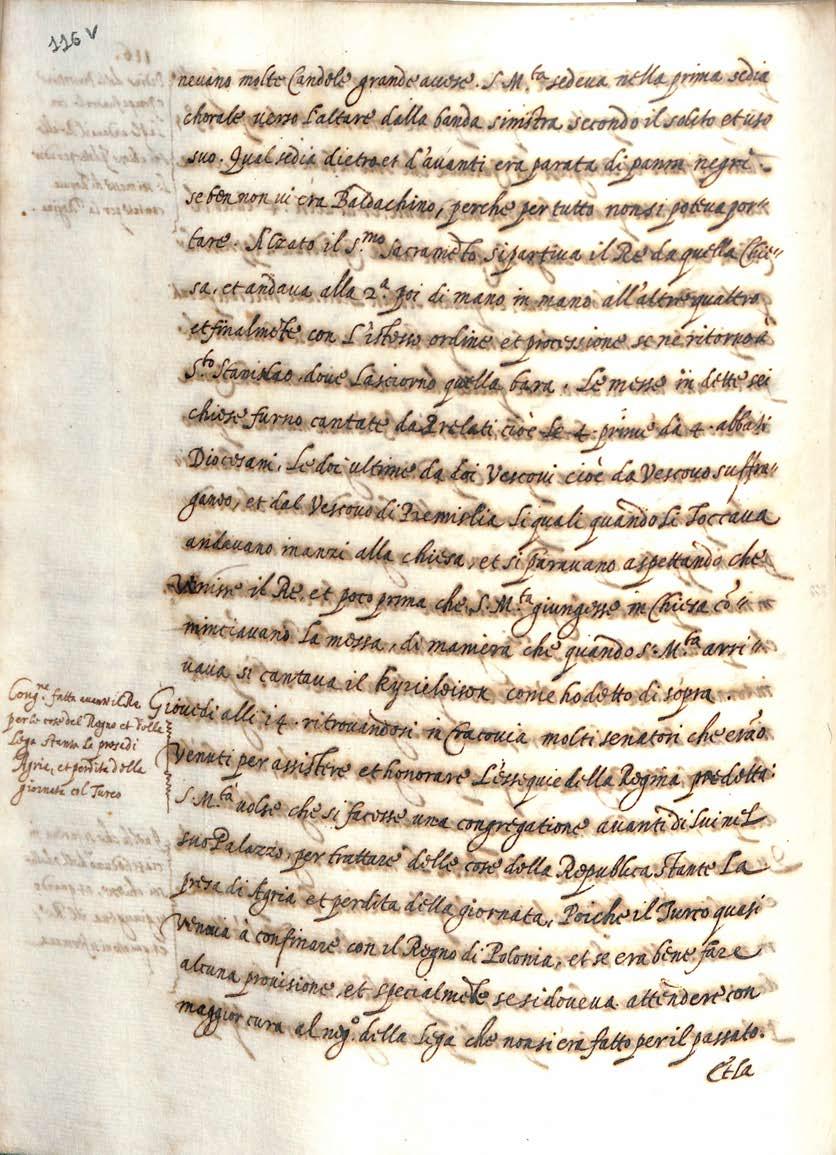 116 v
nevano molte Candele grande accese. S. M.ta sedeva nella prima sedia
chorale verso l'altare dalla banda sinistra secondo il solito et uso
suo. Qual sedia dietro et d'avanti era parata di panni negri
se ben non vi era Baldachino, perche per tutto non si poteva por=
tare. Alzato il S.mo Sacramẽto si partiva il Re da quella Chie=
sa, et andava alla 2.a poi di mano in mano all'altre quattro
et finalmẽte con l'istesso ordine et processione se ne ritornò à
S.to Stanislao dove lasciorno quella bara. Le messe in dette sei
chiese furno cantate da Prelati cioè le 4. prime da 4. abbati
Diocesani, le doi ultime da doi Vescovi cioè da Vescovo suffra=
ganeo, et dal Vescovo di Premislia li quali quando li toccava
andavano inanzi alla chiesa, et si paravano aspettando che
venisse il Re, et poco prima che S. M.ta giungesse in Chiesa cõ=
minciavano la messa, di maniera che quando S. M.ta arri=
vava si cantava il kyrieleison come ho detto di sopra.
Cong.ne fatta avanti il Re
per le cose del Regno et della
Lega stante la presa di
Agria, et perdita della
giornata col Turco
Giovedi alli 14. ritrovandosi in Cracovia molti senatori che erão
venuti per assistere et honorare l'essequie della Regina predetta:
S. M.ta volse che si facesse una congregatione avanti di lui nel
suo Palazzo, per trattare delle cose della Republica stante la
presa di Agria et perdita della giornata, Poiche il Turco quasi
veniva à confinare con il Regno di Polonia, et se era bene fare
alcuna provisione, et specialmẽte se si doveva attendere con
maggior cura al neg.o della lega che non si era fatto per il passato.
Et la